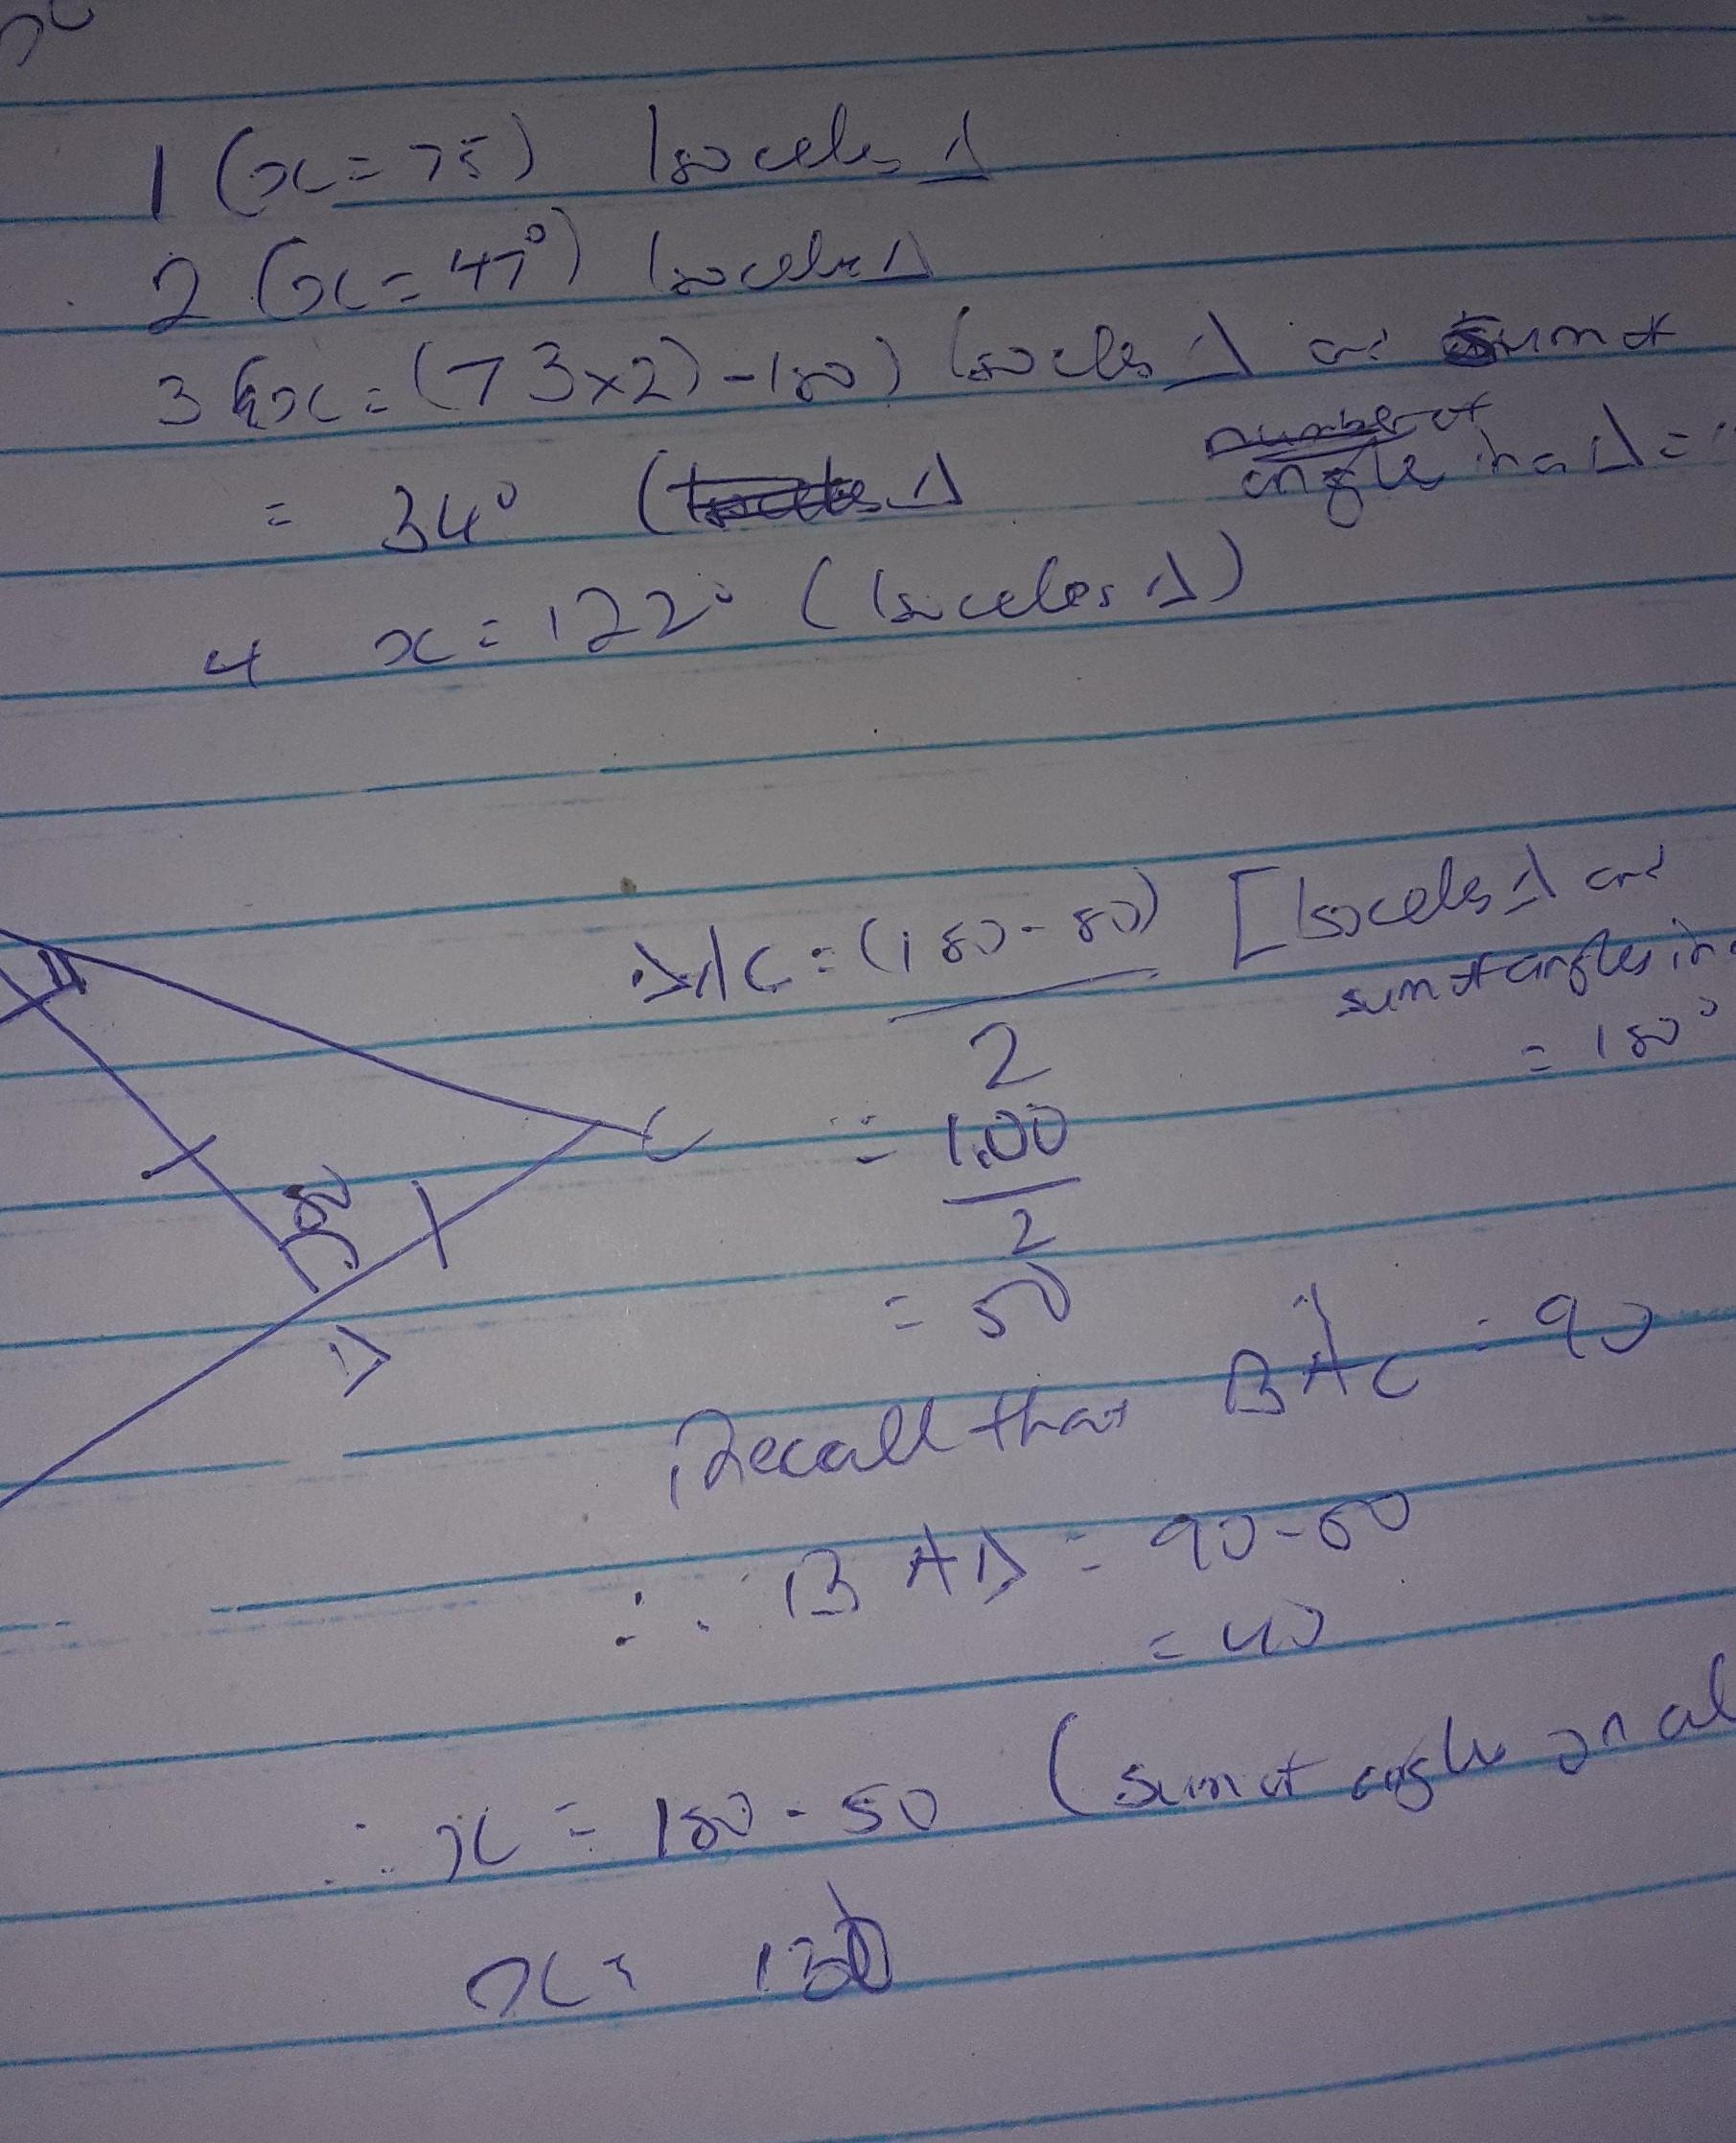 1 (x = 75) Isoceles Δ
2 (x = 47°) Isoceles Δ
3 x = (73×2) - 180) Isoceles Δ and sum of
angle in a Δ =
= 34° ( Δ
4 x = 122° (Isoceles Δ)
DAC = (180 - 80) [Isoceles Δ and
sum of angles in
= 180°
2
= 100
2
= 50
80
C
D
Recall that BAC = 90
∴ BAD = 90 - 50
= 40
∴ x = 180 - 50 (sum of angle on a l
x = 130